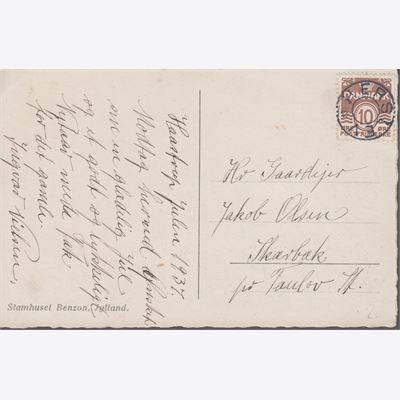 Haastrup julen 1937.
Modtag herved Ønsket
om en glædelig jul
og et godt og lykkelig
Nytaar med Tak
for det gamle
Ingvar Nilsen,
Stamhuset Benzon, Jylland.
DANMARK
10
Hr Gaardejer
Jakob Olsen
Skærbæk
pr Taulov St.